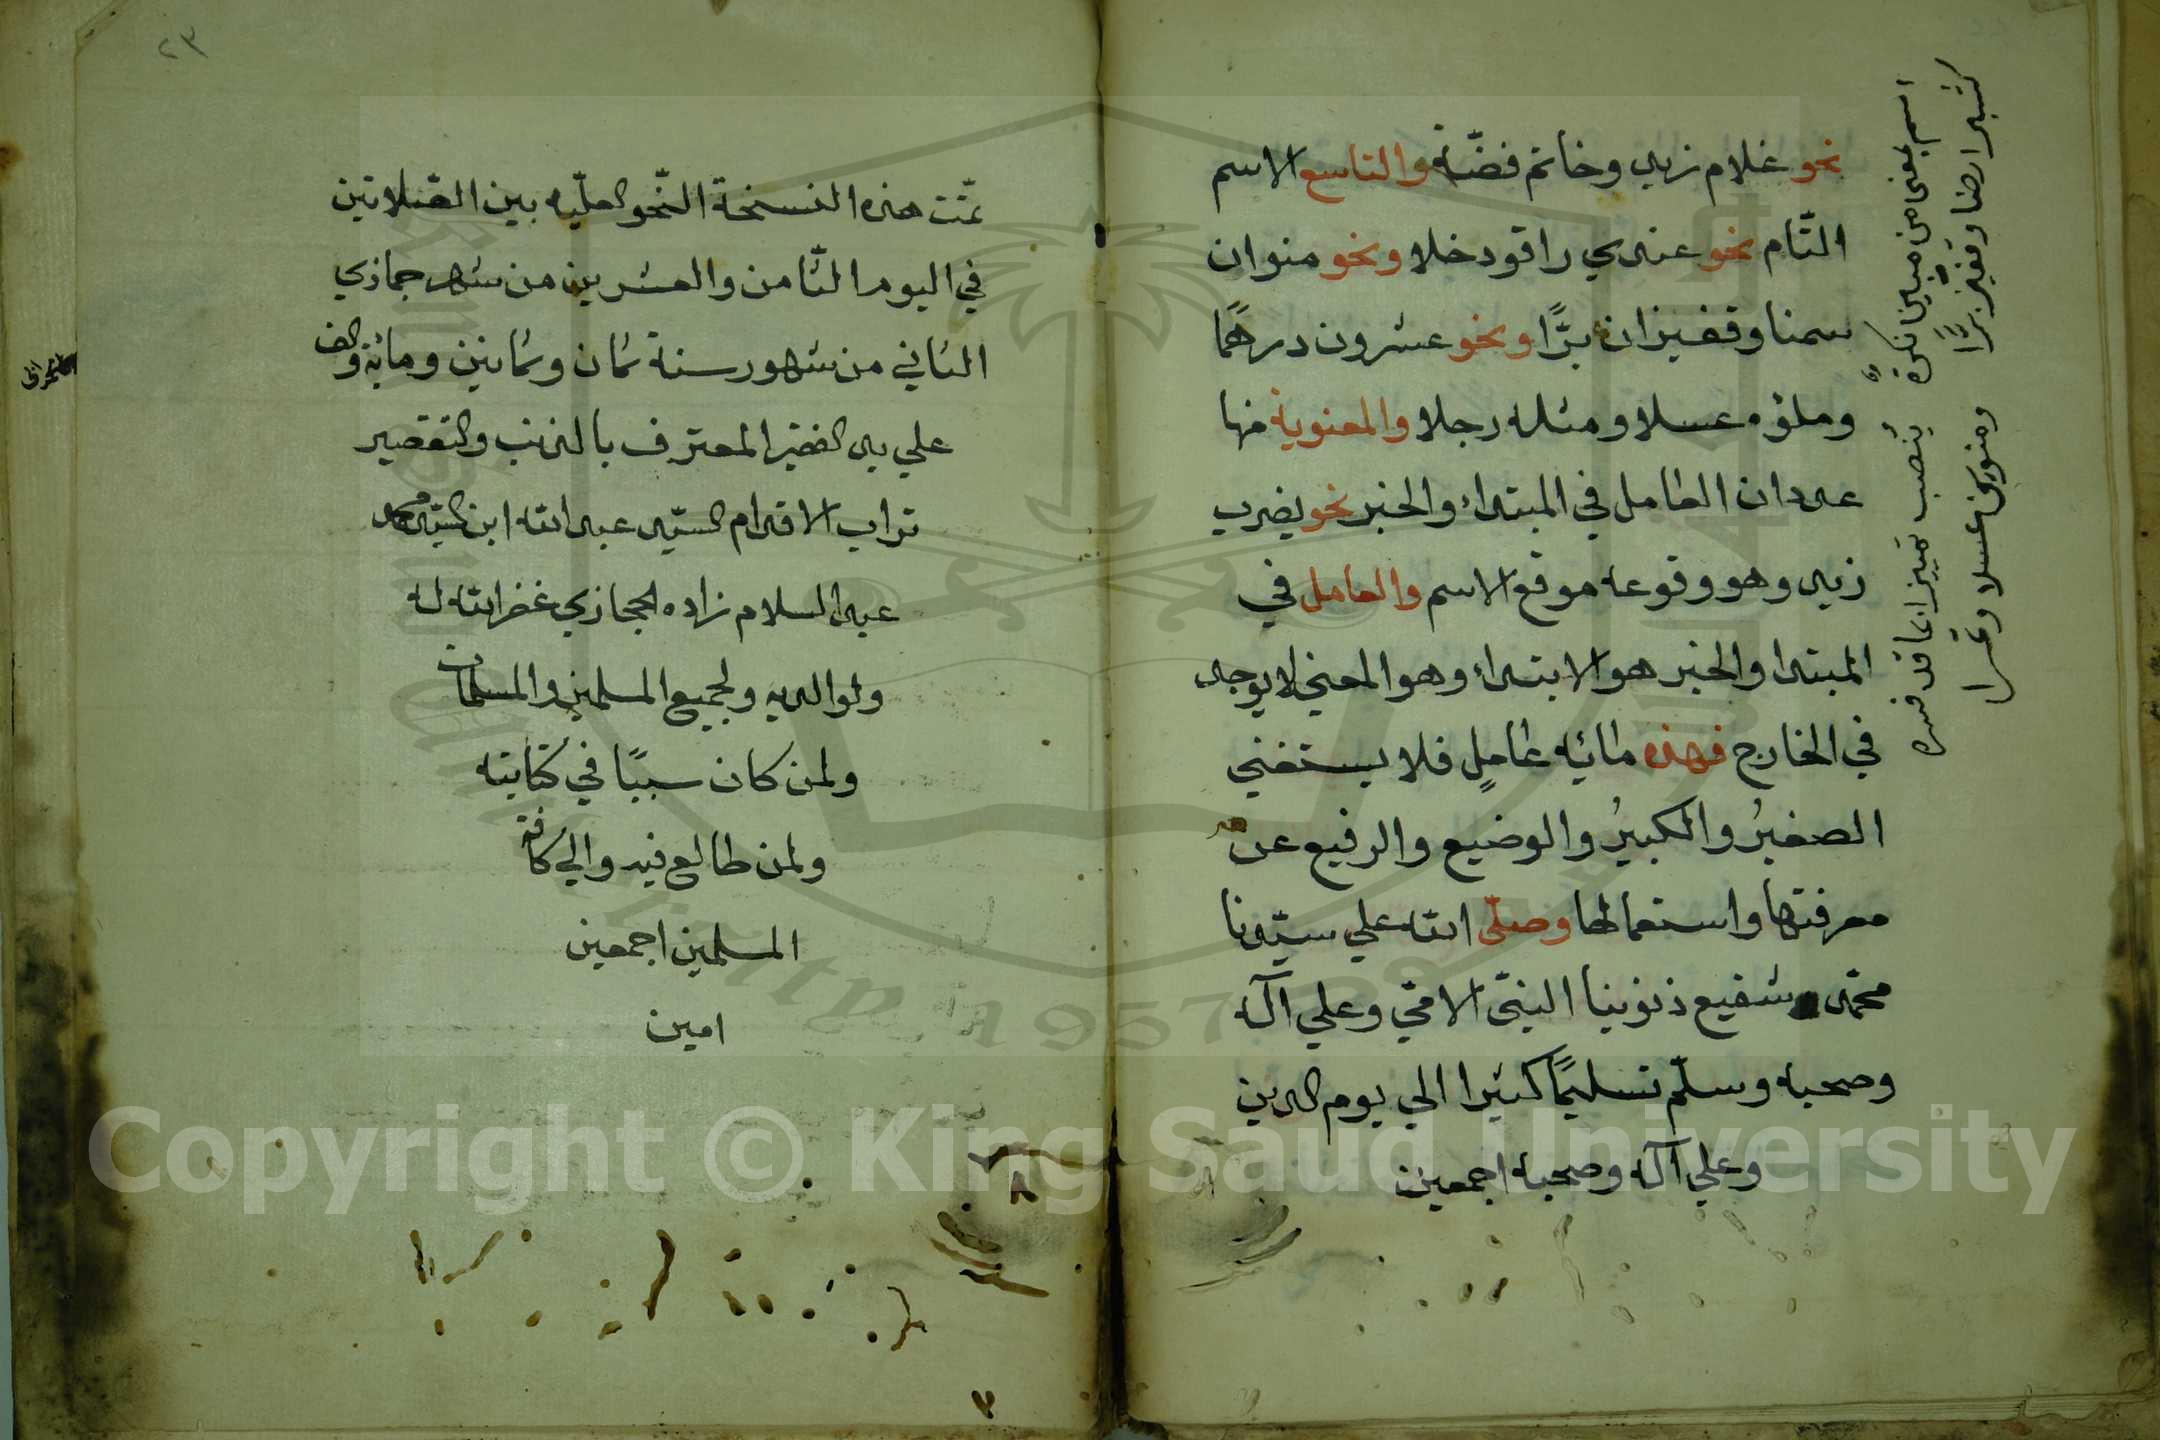 نحو غلام زيد وخاتم فضّة والتاسع الاسم
التّام نحو عندي راقود خلا ونحو منوان
سمنا وقفيزان برًّا ونحو عشرون درهمًا
وملؤه عسلا ومثله رجلا والمعنوية منها
عددان العامل في المبتداء والخبر نحو يضرب
زيد وهو وقوعه موقع الاسم والعامل في
المبتدا والخبر هو الابتداء وهو المعني لا يوجد
في الخارج فهذه مائية عاملٍ فلا يستغني
الصغيرُ والكبيرُ والوضيع والرفيع عن
معرفتها واستعمالها وصلّى الله علي سيّدنا
محمّد شفيع ذنوبنا النبيّ الامّي وعلي آله
وصحبه وسلّم تسليمًا كثيرا الي يوم الدين
وعلي آله وصحبه اجمعين
اسم بمعنى من مبين نكرة ينصب تمييزا بما قد فسره
كشبر ارضا وقفيز برًّا ومنوين عسلا وتمرا
٢٣
تمّت هذه النسخة النّحو العلّيه بين الصّلاتين
في اليوم الثّامن والعشرين من شهر جماذي
الثاني من شهور سنة ثمان وثمانين ومائة والف
علي يد الفقير المعترف بالذنب والتقصير
تراب الاقدام السيّد عبد الله ابن السيّد محمد
عبد السلام زاده الحجازي غفر الله له
ولوالديه ولجميع المسلمين والمسلمات
ولمن كان سببًا في كتابته
ولمن طالع فيه والي كافة
المسلمين اجمعين
امين
Copyright © King Saud University
1957